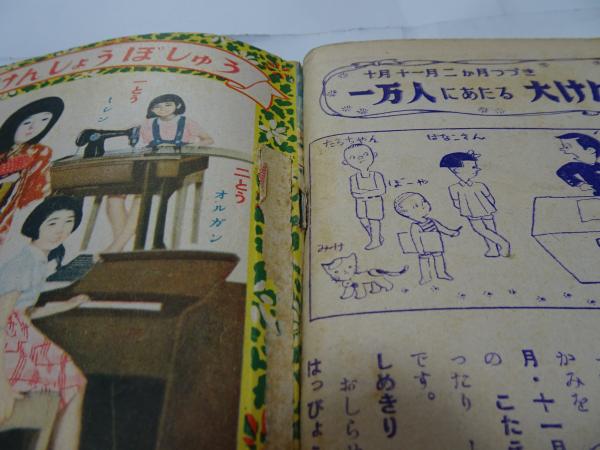 けんしょうぼしゅう
一とう
ミシン
二とう
オルガン
十月十一月二か月つづき
一万人にあたる 大けけ
たろちゃん
はなこさん
ぼーや
みけ
かみを
月・十一月
の こたえ
ったり
です。
しめきり
おしらせ
はっぴょう